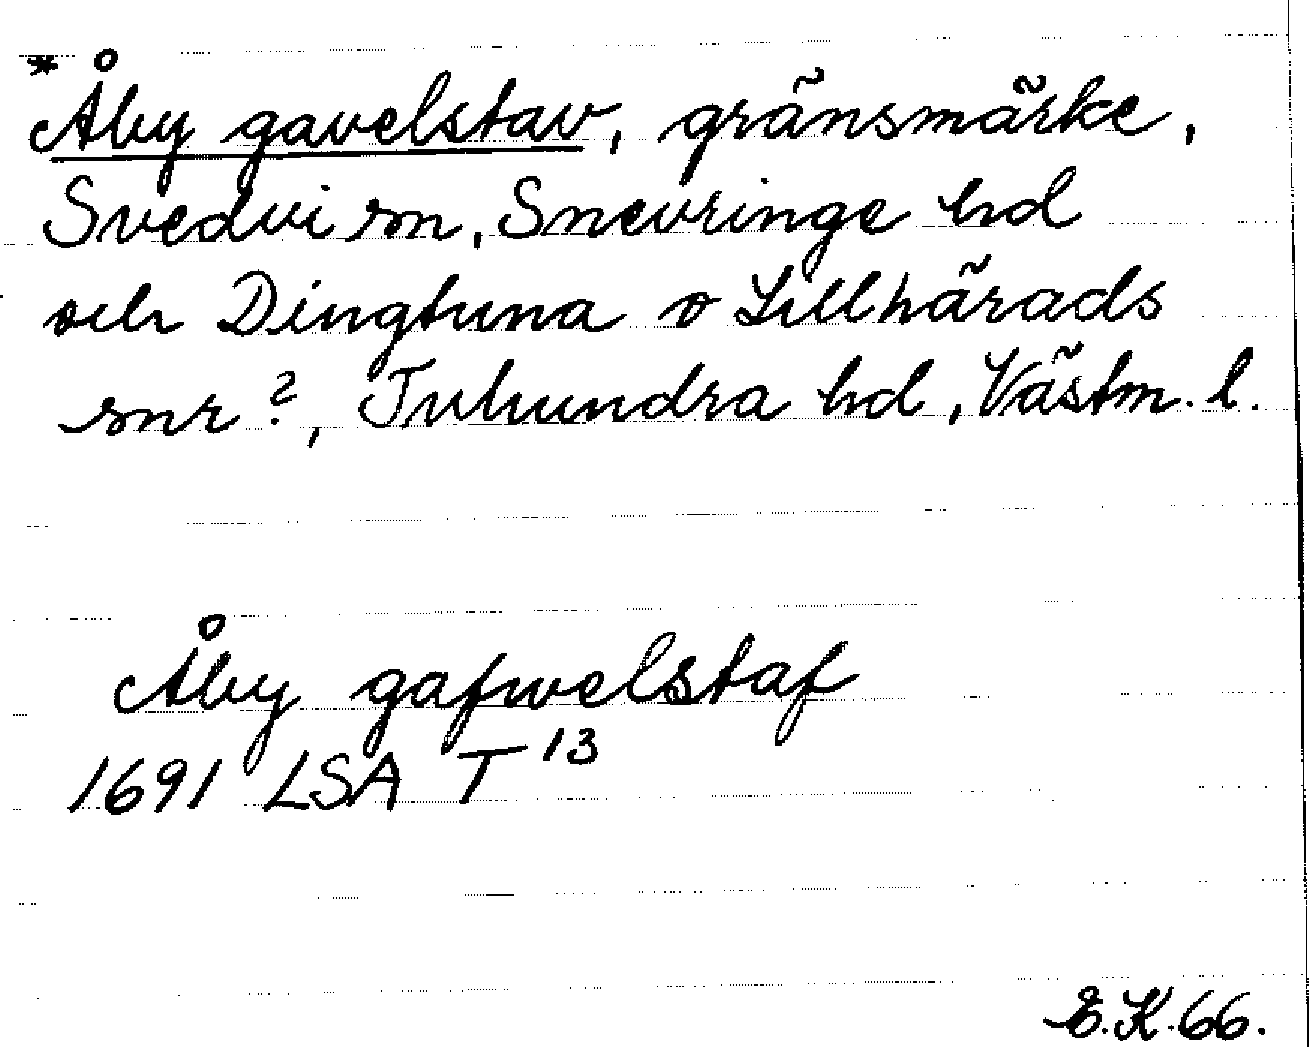 *Åby gavelstav, gränsmärke,
Svedvi sn, Snevringe hd
och Dingtuna o Lillhärads
snr?, Tuhundra hd, Västm. l.
Åby gafwelstaf
1691 LSA T 13
E.K. 66.